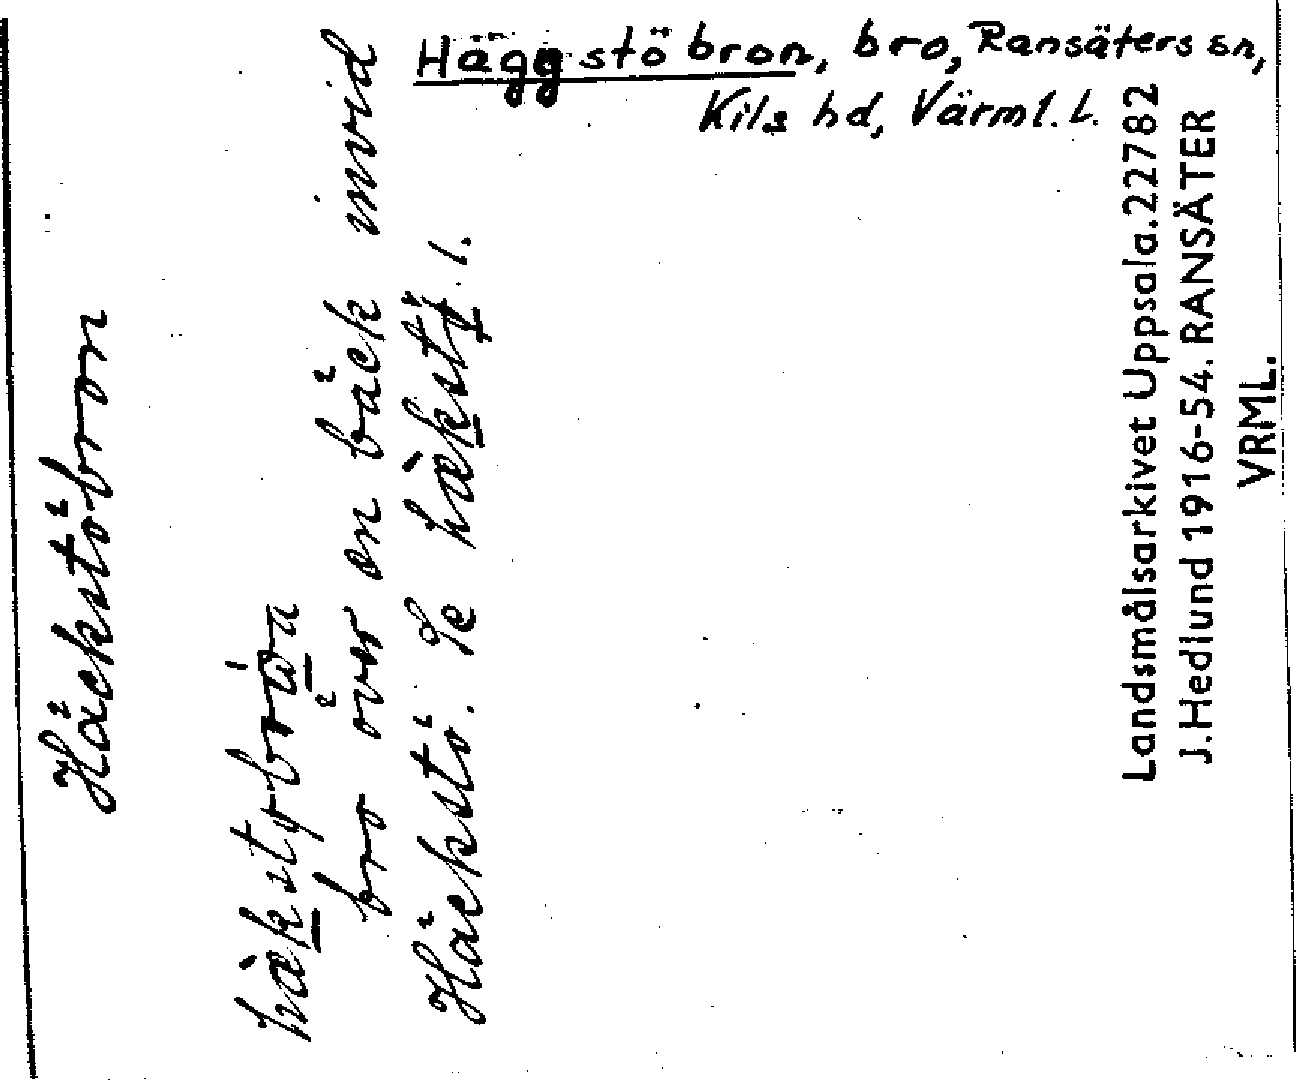 Häggstöbron, bro, Ransäters sn,
Kils hd, Värml. l.
Häckstöbron
bro över en bäck invid
Häckstö. Se 1.
Landsmålsarkivet Uppsala. 22782
J. Hedlund 1916-54. RANSÄTER
VRML.